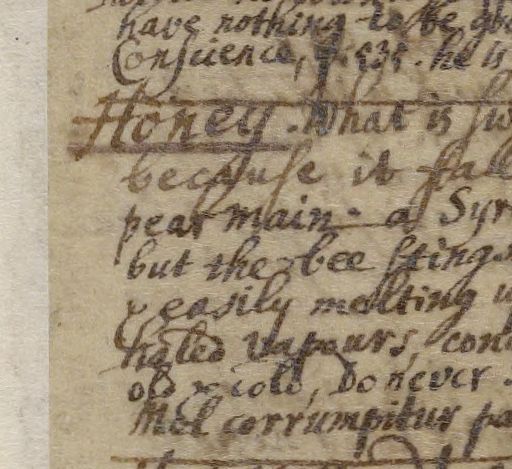 have nothing to be
Conscience, p. 535. he is
Honey. What is
because it
pear main. a
but the bee stings
& easily melting
haled vapours,
old & cold, Do never
Mel corrumpitur